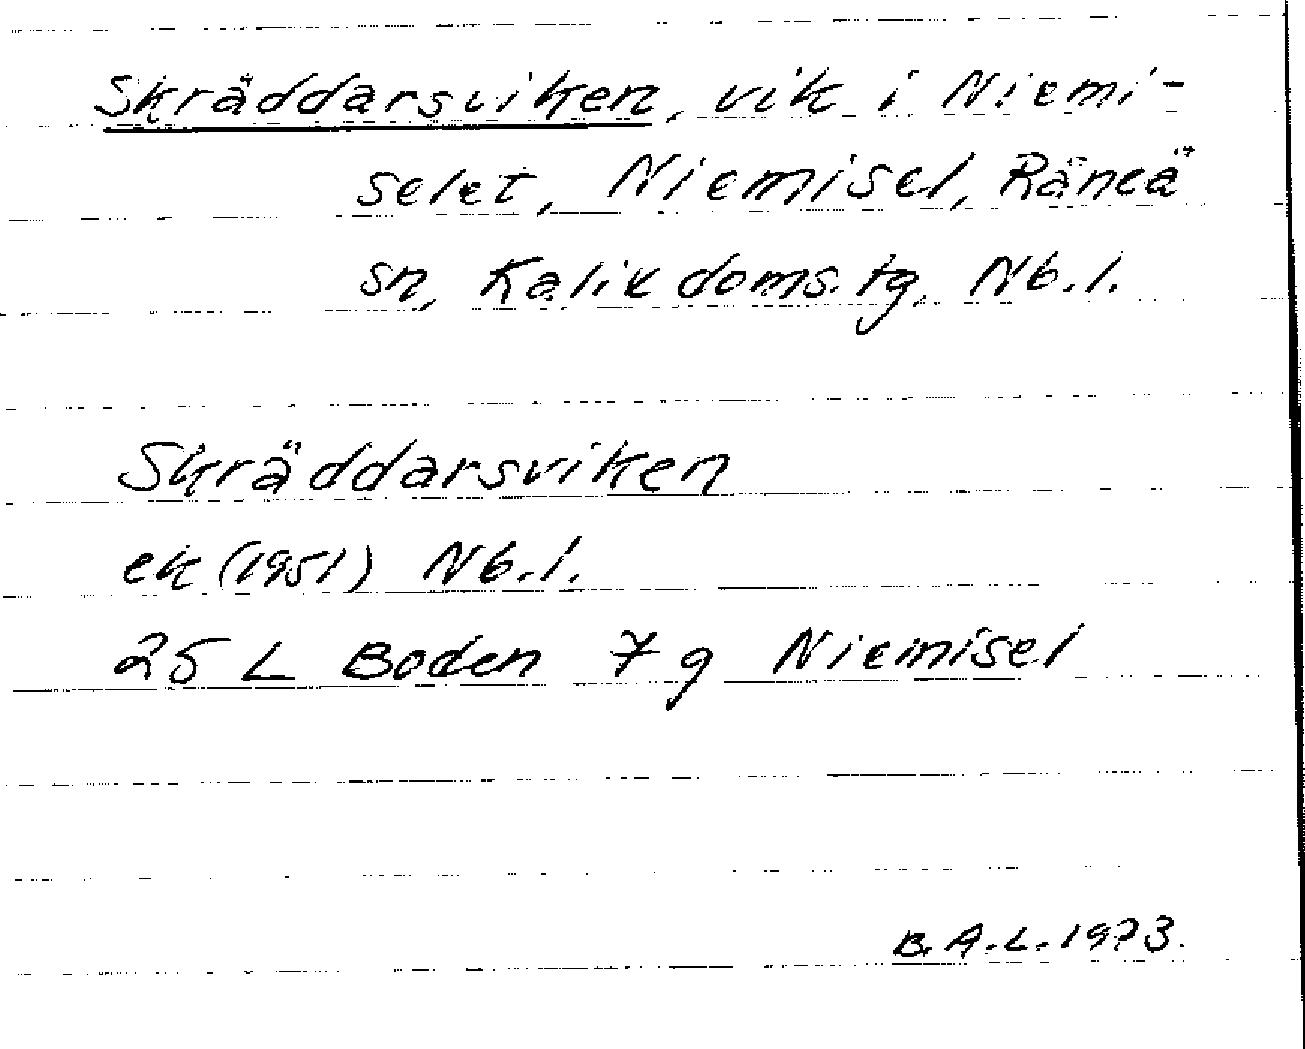 Skräddarsviken, vik i Niemi-
selet, Niemisel, Råneå
sn, Kalix doms. tg, Nb. l.
Skräddarsviken
ek (1951) Nb. l.
25 L Boden 7 g Niemisel
B. A. L. 1973.